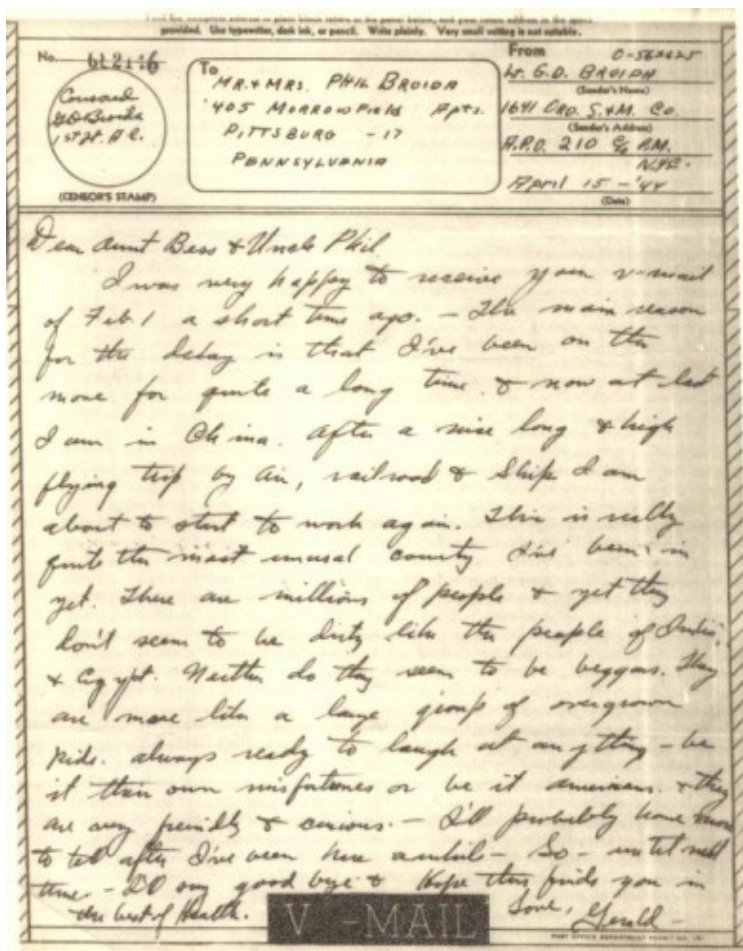 Print the complete address in plain block letters in the panel below, and your return address in the space
provided. Use typewriter, dark ink, or pencil. Write plainly. Very small writing is not suitable.
No.
Censored
G D Broida
1st Lt. A.C.
(CENSOR'S STAMP)
To
MR. & MRS. PHIL BROIDA
405 MORROWFIELD Apts.
PITTSBURG -17
PENNSYLVANIA
From O-562625
Lt. G.D. BROIDA
(Sender's Name)
1641 ORD. S.&M. Co.
(Sender's Address)
A.P.O. 210 c/o P.M.
N.Y.C.
April 15-'44
(Date)
Dear Aunt Bess & Uncle Phil
I was very happy to receive your v-mail
of Feb. 1 a short time ago. - The main reason
for the delay is that I've been on the
move for quite a long time. & now at last
I am in China. After a nice long & high
flying trip by air, railroad & ship I am
about to start to work again. This is really
quite the most unusal country I've been in
yet. There are millions of people & yet they
don't seem to be dirty like the people of India,
& Egypt. Neither do they seem to be beggars. They
are more like a large group of overgrown
kids. always ready to laugh at anything - be
it their own misfortunes or be it americans. & they
are very friendly & curious. - I'll probably have more
to tell after I've been here awhile - So - until next
time - I'll say good bye & Hope this finds you in
the best of Health.
Love, Gerald -
V-MAIL
POST OFFICE DEPARTMENT PERMIT NO.